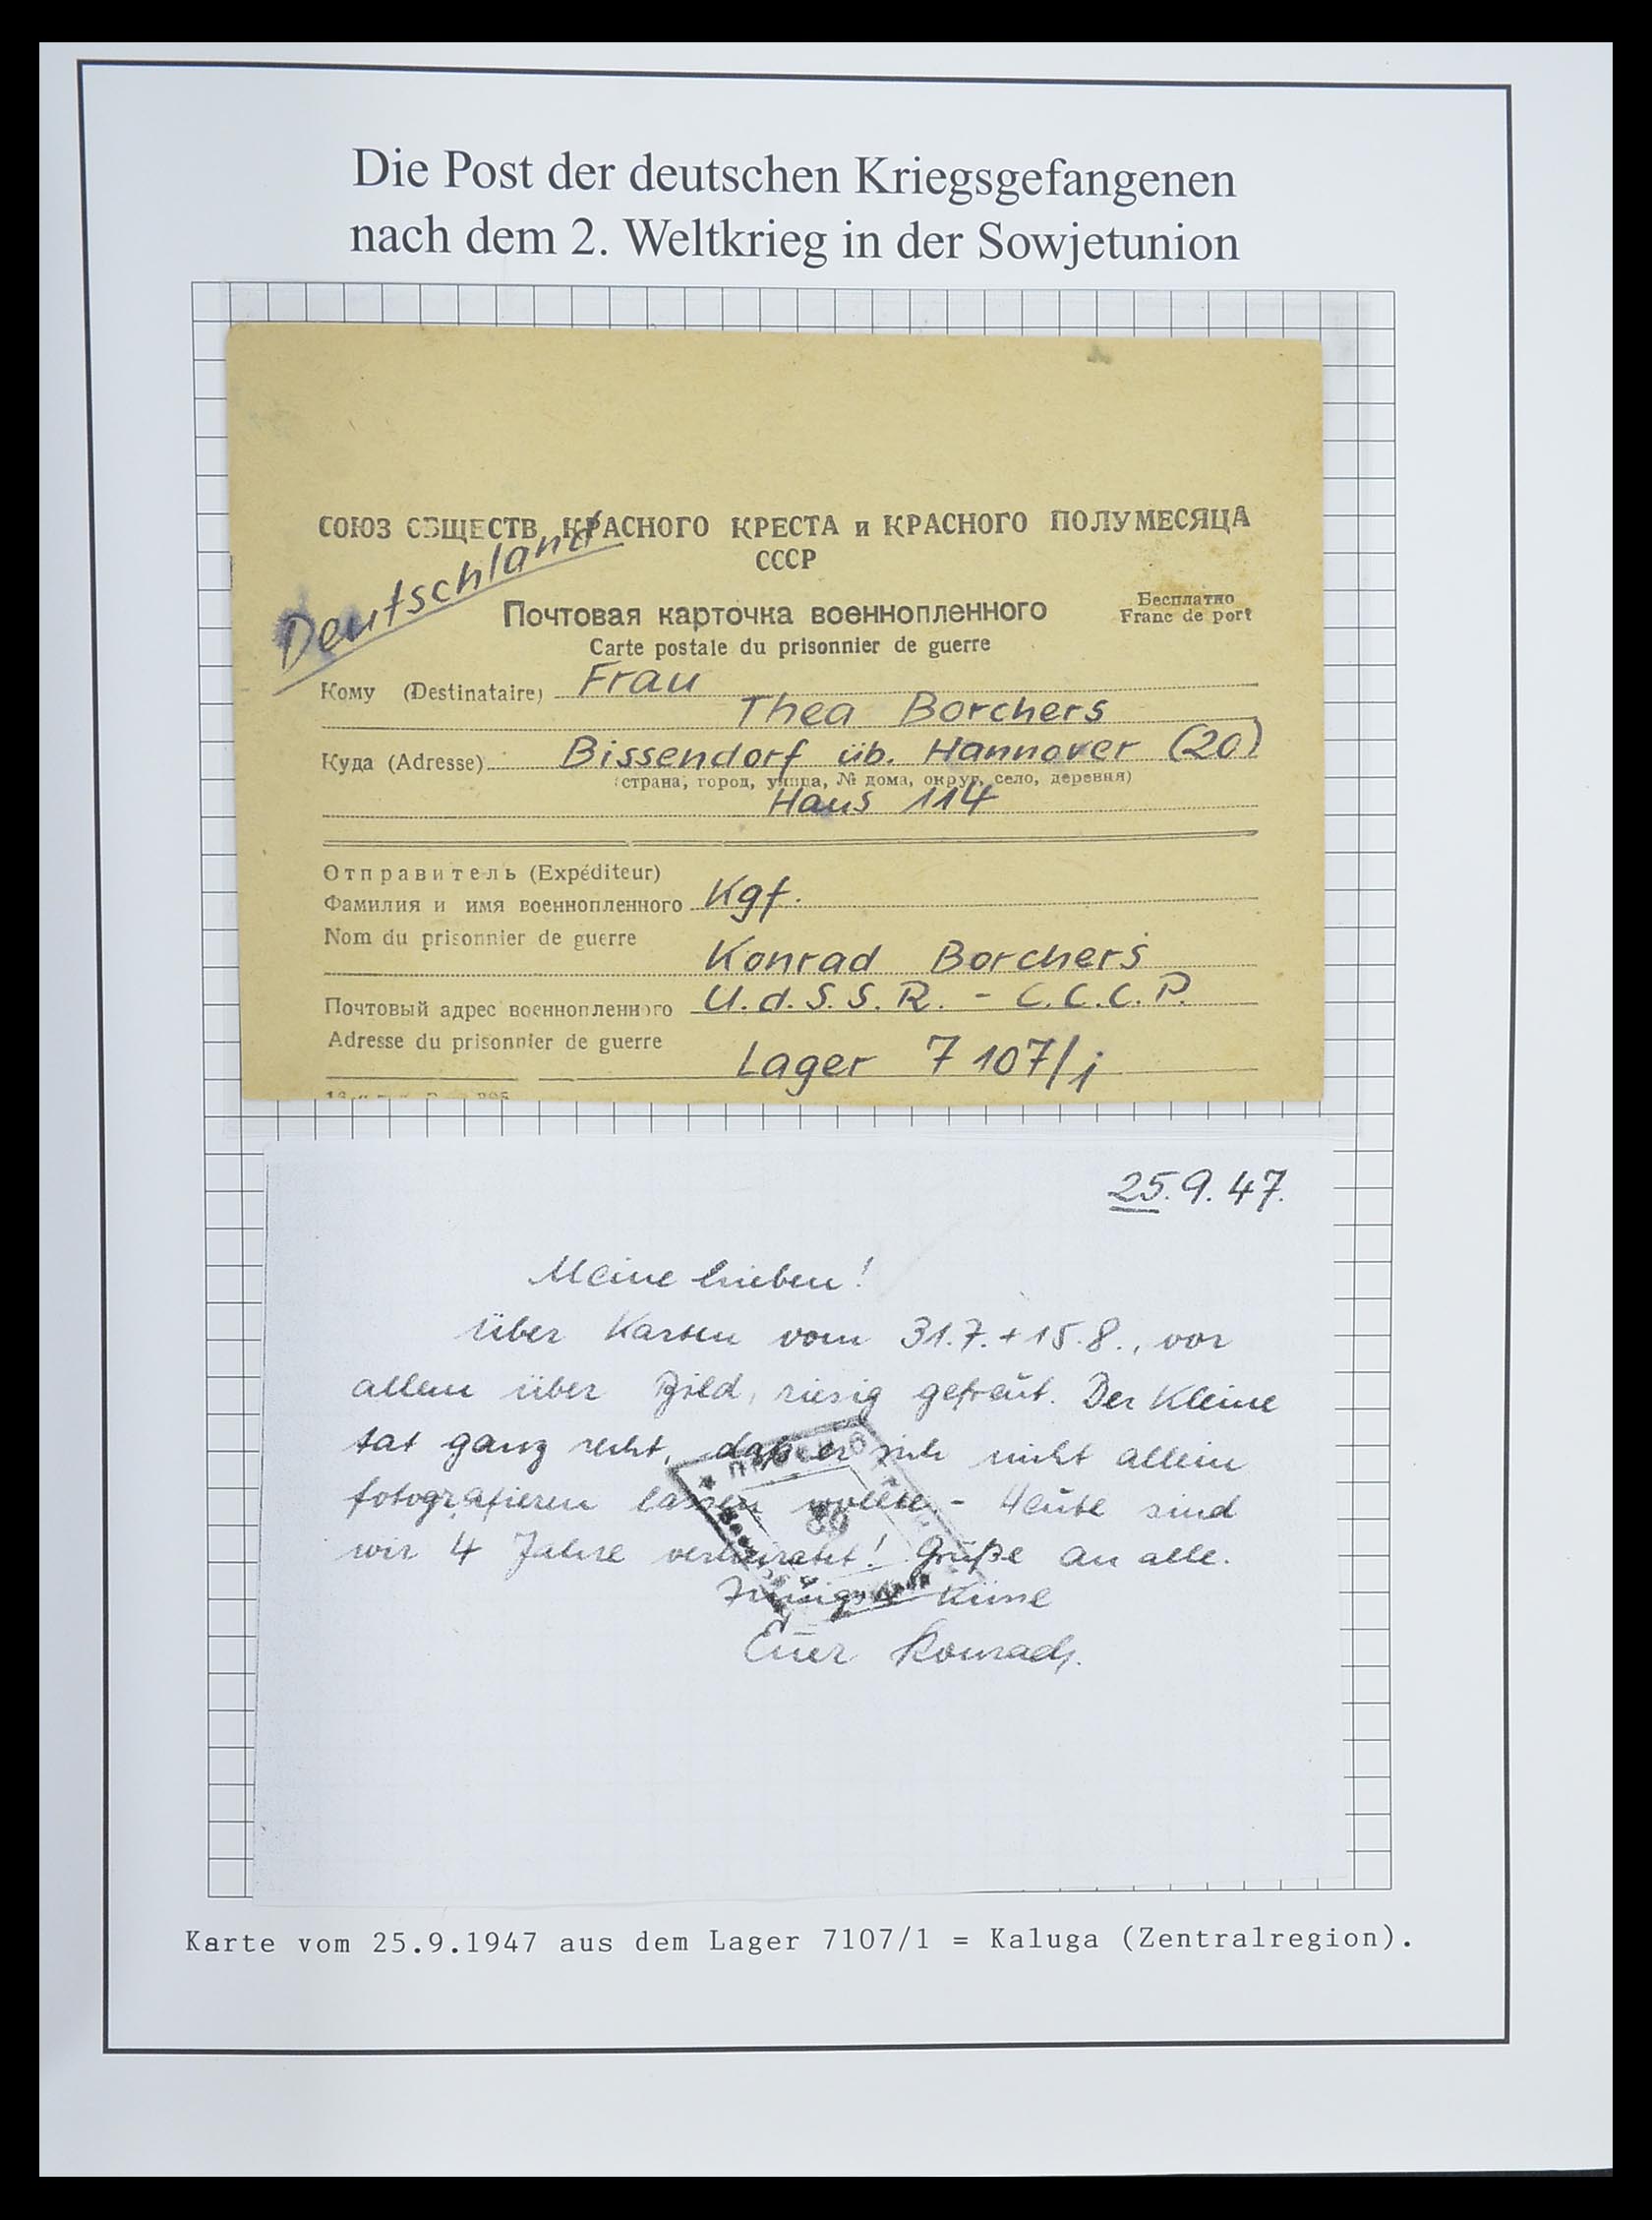 Die Post der deutschen Kriegsgefangenen
nach dem 2. Weltkrieg in der Sowjetunion
СОЮЗ ОБЩЕСТВ КРАСНОГО КРЕСТА и КРАСНОГО ПОЛУМЕСЯЦА
СССР
Deutschland
Почтовая карточка военнопленного
Бесплатно
Franc de port
Carte postale du prisonnier de guerre
Кому (Destinataire) Frau
Thea Borchers
Куда (Adresse) Bissendorf üb. Hannover (20)
(страна, город, улица, № дома, округ, село, деревня)
Haus 114
Отправитель (Expéditeur)
Фамилия и имя военнопленного Kgf.
Nom du prisonnier de guerre
Konrad Borchers
Почтовый адрес военнопленного U.d.S.S.R. - C.C.C.P.
Adresse du prisonnier de guerre
Lager 7107/1
25.9.47.
Meine Lieben!
Über Karten vom 31.7.+15.8., vor
allem über Bild, riesig gefreut. Der Kleine
tat ganz recht, daß er sich nicht allein
fotografieren lassen wollte - Heute sind
wir 4 Jahre verheiratet! Grüße an alle.
Innigste Küsse
Euer Konrad.
Karte vom 25.9.1947 aus dem Lager 7107/1 = Kaluga (Zentralregion).